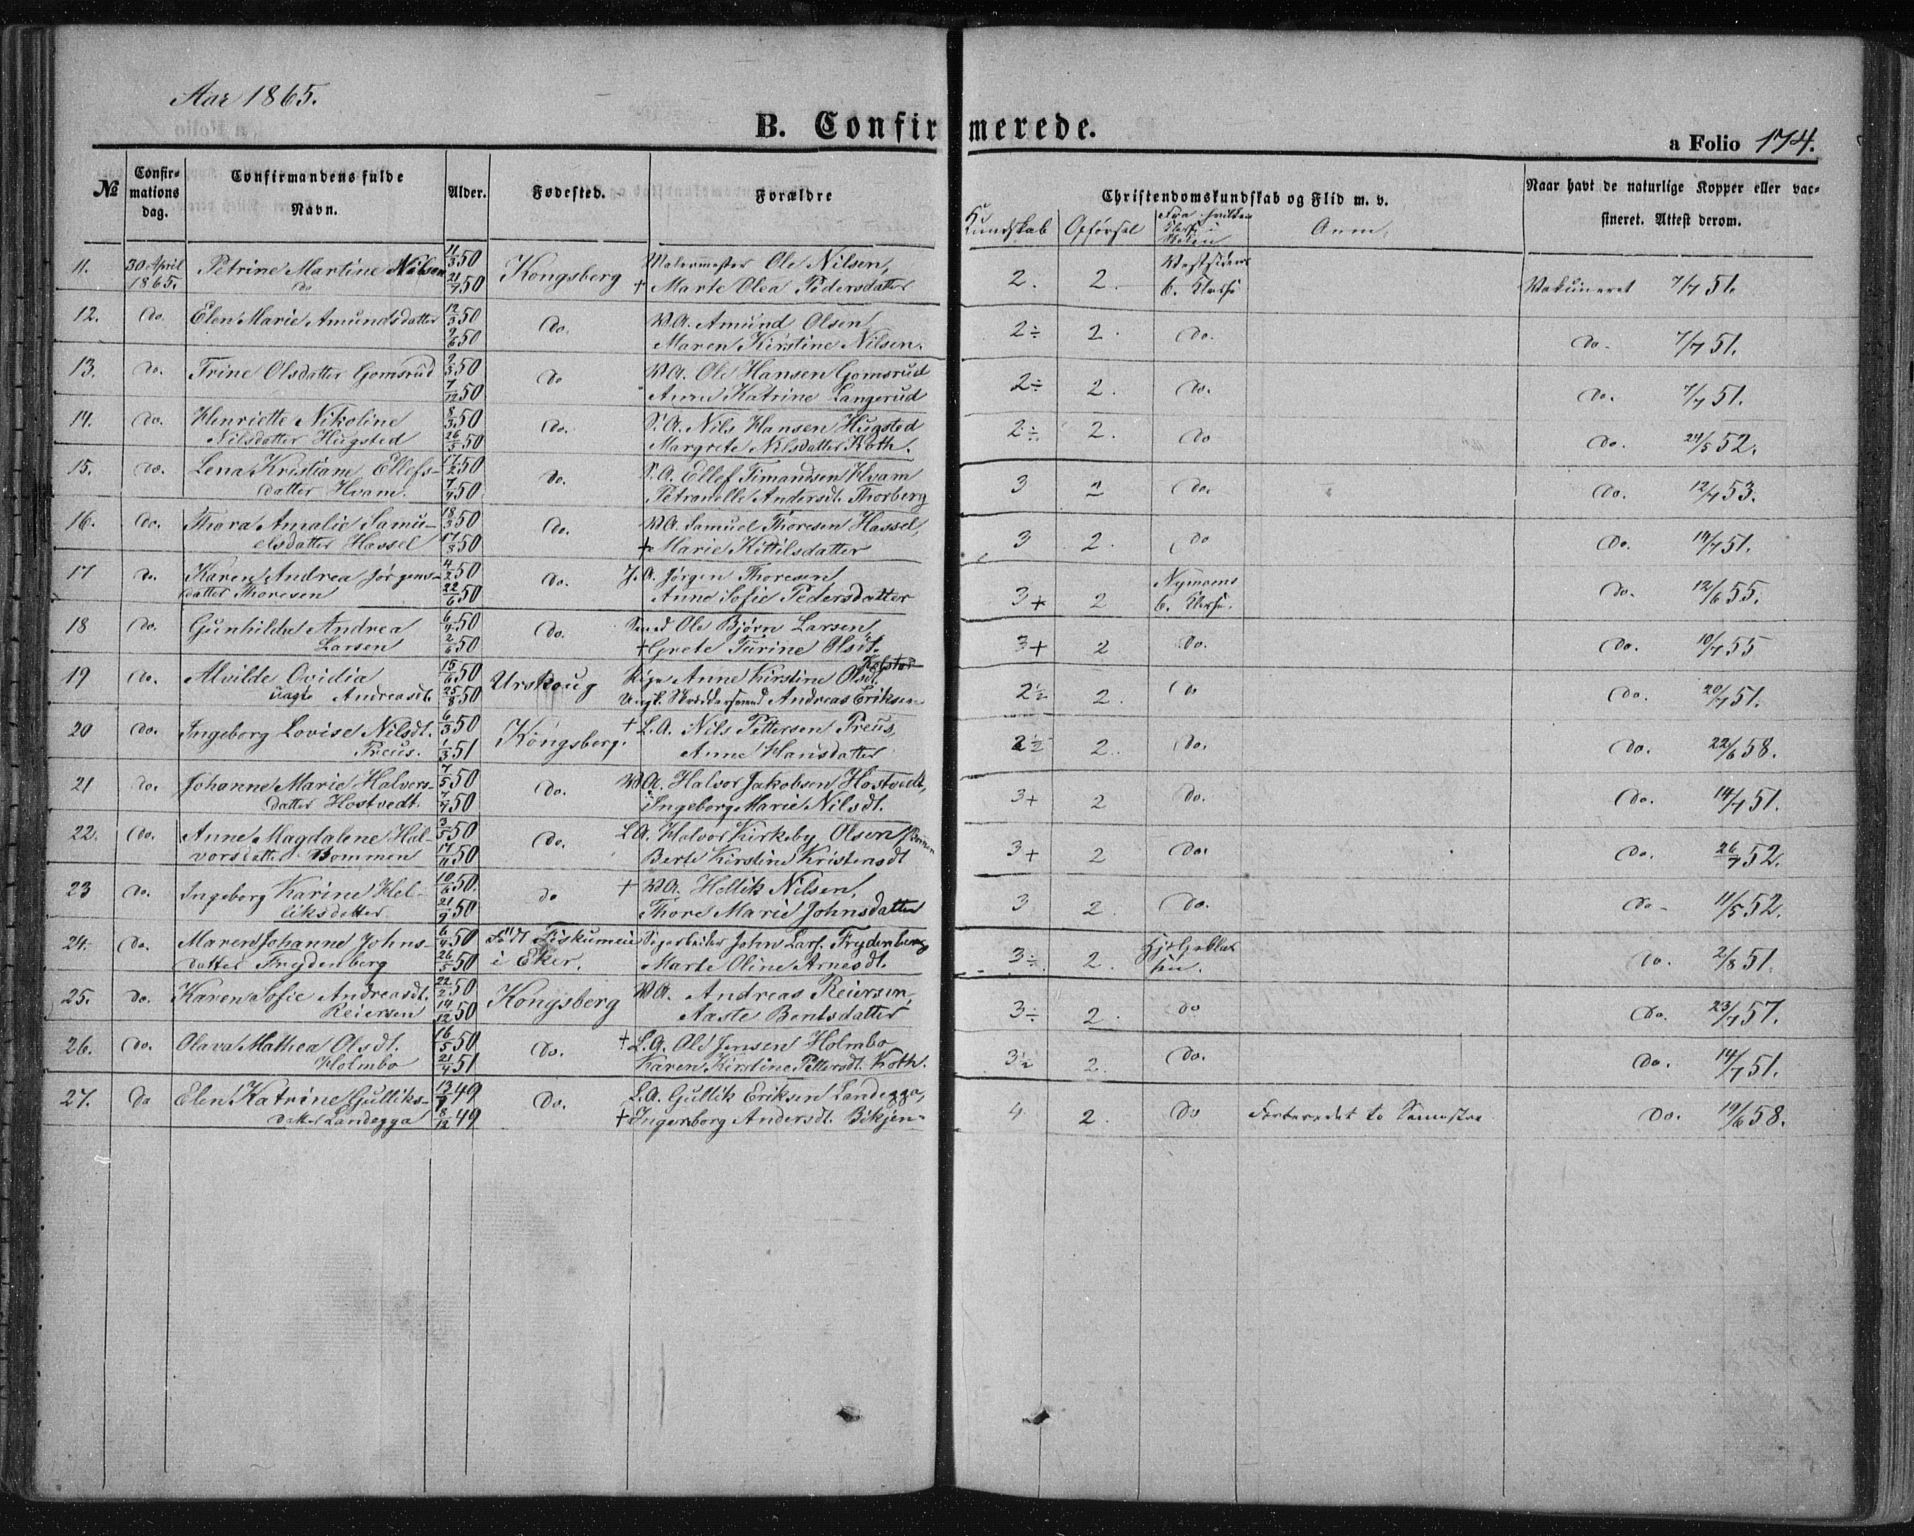 Aar 1865.
B. Confirmerede.
a Folio 174.
№ Confirmations dag. Confirmandens fulde Navn. Alder. Fødested. Forældre Christendomskundskab og Flid m. v. Naar havt de naturlige Kopper eller vaccineret. Attest derom.
Kundskab Opførsel Fra hvilken Klasse i Skolen Anm.
11. 30 April 1865. Petrine Martine Nilsen 11/3 50 21/7 50 Kongsberg Malermester Ole Nilsen, + Marte Olea Pedersdatter 2. 2. Vestsidens 6. Klasse Vakcineret 7/7 51.
12. do. Elen Marie Amundsdatter 12/3 50 2/6 50 do. B.A. Amund Olsen Maren Kirstine Nilsen. 2÷ 2. do. do. 7/7 51.
13. do. Trine Olsdatter Gomsrud 2/3 50 7/12 50 do B.A. Ole Hansen Gomsrud Anne Katrine Langerud 2÷ 2. do. do. 7/7 51.
14. do. Henriette Nikoline Nilsdatter Hugsted 8/3 50 26/5 50 do. S.A. Nils Hansen Hugsted Margrete Nilsdatter Koth. 2÷ 2. do do. 24/5 52.
15. do. Lena Kristiane Ellefsdatter Hvam. 17/2 50 7/4 50 do. S.A. Ellef Simandsen Hvam Petranelle Andersdt. Thorberg 3 2 do. do. 12/7 53.
16. do. Thora Amalie Samuelsdatter Hassel 18/3 50 17/8 50 do. B.A. Samuel Thoresen Hassel, + Marie Kittilsdatter 3 2. do do. 14/7 51.
17 do. Karen Andrea Jørgensdatter Thoresen 4/2 50 22/6 50 do. J.A. Jørgen Thoresen, Anne Sofie Pedersdatter 3+ 2 Nymoens 6. Klasse. do. 12/6 55.
18 do. Gunhilde Andrea Larsen 6/4 50 2/6 50 do. Smed Ole Bjørn Larsen, + Grete Turine Olsdt. 3+ 2 do. do. 10/7 55
19 do. Alvilde Ovidia uægte Andreasdt. 15/6 50 25/8 50 Urskoug Pige Anne Kirstine Olsdt. Ungk. Skræddersvend Andreas Eriksen 2½ 2. do do. 20/7 51.
20 do. Ingeborg Lovise Nilsdt. Preus. 6/3 50 1/3 51 Kongsberg. + L.A. Nils Pettersen Preus, Anne Hansdatter 2½ 2. do. do. 22/6 58.
21 do. Johanne Marie Halvorsdatter Hostvedt. 7/5 50 7/7 50 do. B.A. Halvor Jakobsen Hostvedt, Ingeborg Marie Nilsdt. 3+ 2 do. do. 14/7 51.
22. do. Anne Magdalene Halvorsdatter Bommen 3/5 50 17/11 50 do. L.A. Halvor Kirkeby Olsen (Bommen Berte Kirstine Kristensdt 3+ 2 do. do. 26/7 52.
23 do. Ingeborg Karine Helliksdatter 10/6 50. 21/9 50 do + B.A. Hellik Nilsen, Thore Marie Johnsdatter 3 2. do. do 11/5 52.
24. do. Maren Johanne Johnsdatter Frydenberg 6/4 50 26/5 50 Født Fiskumeie i Eker. Sagarbeider John Lars. Frydenberg Marte Oline Arnesdt. 3÷ 2. do. 2/8 51.
25. do. Karen Sofie Andreasdt. Reiersen 22/2 50 14/12 50 Kongsberg B.A. Andreas Reiersen, Aaste Bentsdatter 3÷ 2. do do. 23/7 57.
26. do. Olava Mathea Olsdt. Holmbo 16/5 50 21/4 51 do. + L.A. Ole Jensen Holmbo Karen Kirstine Pettersdt. Koth. 3½ 2. do. do. 14/7 51.
27. do Elen Katrine Gulliksdatter Landegga 13/7 49 8/12 49 do. L.A. Gullik Eriksen Landegga, + Ingeborg Andersdt. Bikjen 4 2. do Forberedet to Semestre do. 19/6 58.